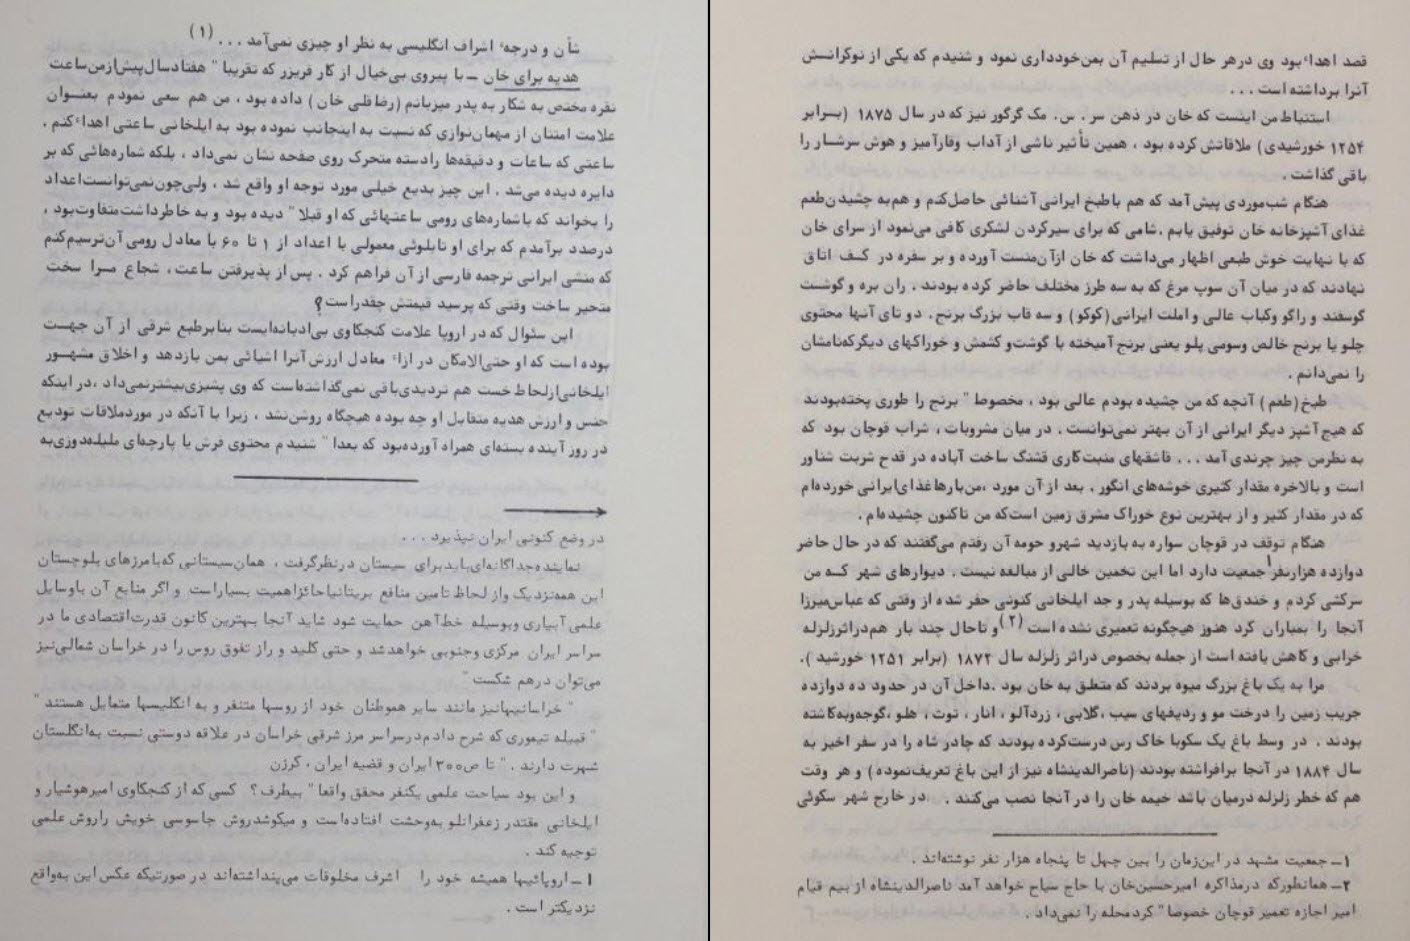 شأن و درجهٔ اشراف انگلیسی به نظر او چیزی نمی‌آمد . . . (۱)
هدیه برای خان ـ با پیروی بی‌خیال از کار فریزر که تقریبا" هفتاد سال پیش از من ساعت
نقره مختص به شکار به پدر میزبانم (رضاقلی خان) داده بود ، من هم سعی نمودم بعنـوان
علامت امتنان از مهمان‌نوازی که نسبت به اینجانب نموده بود به ایلخانی ساعتی اهداء کنم .
ساعتی که ساعات و دقیقه‌ها را دسته متحرک روی صفحه نشان نمی‌داد ، بلکه شماره‌هائی که بر
دایره دیده می‌شد . این چیز بدیع خیلی مورد توجه او واقع شد ، ولی چون نمی‌توانست اعداد
را بخواند که با شماره‌های رومی ساعتهائی که او قبلا" دیده بود و به خاطر داشت متفاوت بود ،
درصدد برآمدم که برای او تابلوئی معمولی با اعداد از ۱ تا ۶۰ با معادل رومی آن ترسیم کنم
که منشی ایرانی ترجمه فارسی از آن فراهم کرد . پس از پذیرفتن ساعت ، شجاع مـرا سخت
متحیر ساخت وقتی که پرسید قیمتش چقدر است؟
این سئوال که در اروپا علامت کنجکاوی بی‌ادبانه‌ایست بنابر طبع شرقی از آن جهـت
بوده است که او حتی‌الامکان در ازاء معادل ارزش آنرا اشیائی بمن بازدهد و اخلاق مشهـور
ایلخانی از لحاظ خست هم تردیدی باقی نمی‌گذاشته‌است که وی پشیزی بیشتر نمی‌داد ، در اینکه
جنس و ارزش هدیه متقابل او چه بوده هیچگاه روشن نشد ، زیرا با آنکه در مورد ملاقات تودیع
در روز آینده بسته‌ای همراه آورده بود که بعدا" شنیدم محتوی فرش یا پارچه‌ای ملیله‌دوزی به
در وضع کنونی ایران نپذیرد . . .
نماینده جداگانه‌ای باید برای سیستان در نظر گرفت ، همان سیستانی که با مرزهای بلوچستان
این همه نزدیک و از لحاظ تامین منافع بریتانیا حائز اهمیت بسیار است و اگر منابع آن با وسایل
علمی آبیاری و بوسیله خط‌آهن حمایت شود شاید آنجا بهترین کانون قدرت اقتصادی ما در
سراسر ایران مرکزی و جنوبی خواهد شد و حتی کلید و راز تفوق روس را در خراسان شمالی نیز
می‌توان درهم شکست "
" خراسانیها نیز مانند سایر هموطنان خود از روسها متنفر و به انگلیسها متمایل هستند "
" قبیله تیموری که شرح دادم در سراسر مرز شرقی خراسان در علاقه دوستی نسبت به انگلستان
شهرت دارند . " تا ص ۳۰۰ ایران و قضیه ایران ، کرزن
و این بود سیاحت علمی یکنفر محقق واقعا" بیطرف؟ کسی که از کنجکاوی امیر هوشیار و
ایلخانی مقتدر زعفرانلو به وحشت افتاده است و میکوشد روش جاسوسی خویش را روش علمی
توجیه کند .
۱ ـ اروپائیها همیشه خود را اشرف مخلوقات می‌پنداشته‌اند در صورتیکه عکس این به واقع
نزدیکتر است .
قصد اهداء بود وی درهر حال از تسلیم آن بمن خودداری نمود و شنیدم که یکی از نوکرانـش
آنرا برداشته است . . .
استنباط من اینست که خان در ذهن سر . س . مک گرگور نیز که در سال ۱۸۷۵ (بـرابر
۱۲۵۴ خورشیدی) ملاقاتش کرده بود ، همین تأثیر ناشی از آداب وقارآمیز و هوش سرشـار را
باقی گذاشت .
هنگام شب موردی پیش آمد که هم با طبخ ایرانی آشنائی حاصل کنم و هم به چشیدن طعم
غذای آشپزخانه خان توفیق یابم . شامی که برای سیر کردن لشکری کافی می‌نمود از سرای خان
که با نهایت خوش طبعی اظهار می‌داشت که خان از آن منست آورده و بر سفره در کـف اتاق
نهادند که در میان آن سوپ مرغ که به سه طرز مختلف حاضر کرده بودند . ران بره و گوشـت
گوسفند و راگو و کباب عالی و املت ایرانی (کوکو) و سه قاب بزرگ برنج . دو تای آنها محتوی
چلو یا برنج خالص و سومی پلو یعنی برنج آمیخته با گوشت و کشمش و خوراکهای دیگر که نامشان
را نمی‌دانم .
طبخ (طعم) آنچه که من چشیده بودم عالی بود ، مخصوصا" برنج را طوری پخته بودند
که هیچ آشپز دیگر ایرانی از آن بهتر نمی‌توانست . در میان مشروبات ، شراب قوچان بود که
به نظر من چیز چرندی آمد . . . قاشقهای منبت‌کاری قشنگ ساخت آباده در قدح شربت شناور
است و بالاخره مقدار کثیری خوشه‌های انگور . بعد از آن مورد ، من بارها غذای ایرانی خورده‌ام
که در مقدار کثیر و از بهترین نوع خوراک مشرق زمین است که من تاکنون چشیده‌ام .
هنگام توقف در قوچان سواره به بازدید شهر و حومه آن رفتم می‌گفتند که در حال حاضر
دوازده هزار نفر۱ جمعیت دارد اما این تخمین خالی از مبالغه نیست . دیوارهای شهر کـه من
سرکشی کردم و خندق‌ها که بوسیله پدر و جد ایلخانی کنونی حفر شده از وقتی که عباس میرزا
آنجا را بمباران کرد هنوز هیچگونه تعمیری نشده است (۲) و تاحال چند بار هم در اثر زلزله
خرابی و کاهش یافته است از جمله بخصوص در اثر زلزله سال ۱۸۷۲ (برابر ۱۲۵۱ خورشید) .
مرا به یک باغ بزرگ میوه بردند که متعلق به خان بود . داخل آن در حدود ده دوازده
جریب زمین را درخت مو و ردیفهای سیب ، گلابی ، زردآلو ، انار ، توت ، هلو ، گوجه و به کاشته
بودند . در وسط باغ یک سکوبا خاک رس درست کرده بودند که چادر شاه را در سفر اخیر به
سال ۱۸۸۴ در آنجا برافراشته بودند (ناصرالدینشاه نیز از این باغ تعریف نموده) و هر وقت
هم که خطر زلزله در میان باشد خیمه خان را در آنجا نصب می‌کنند . در خارج شهر سکوئی
۱ ـ جمعیت مشهد در این زمان را بین چهل تا پنجاه هزار نفر نوشته‌اند .
۲ ـ همانطور که در مذاکره امیرحسین‌خان با حاج سیاح خواهد آمد ناصرالدینشاه از بیم قیام
امیر اجازه تعمیر قوچان خصوصا" کرد محله را نمی‌داد .